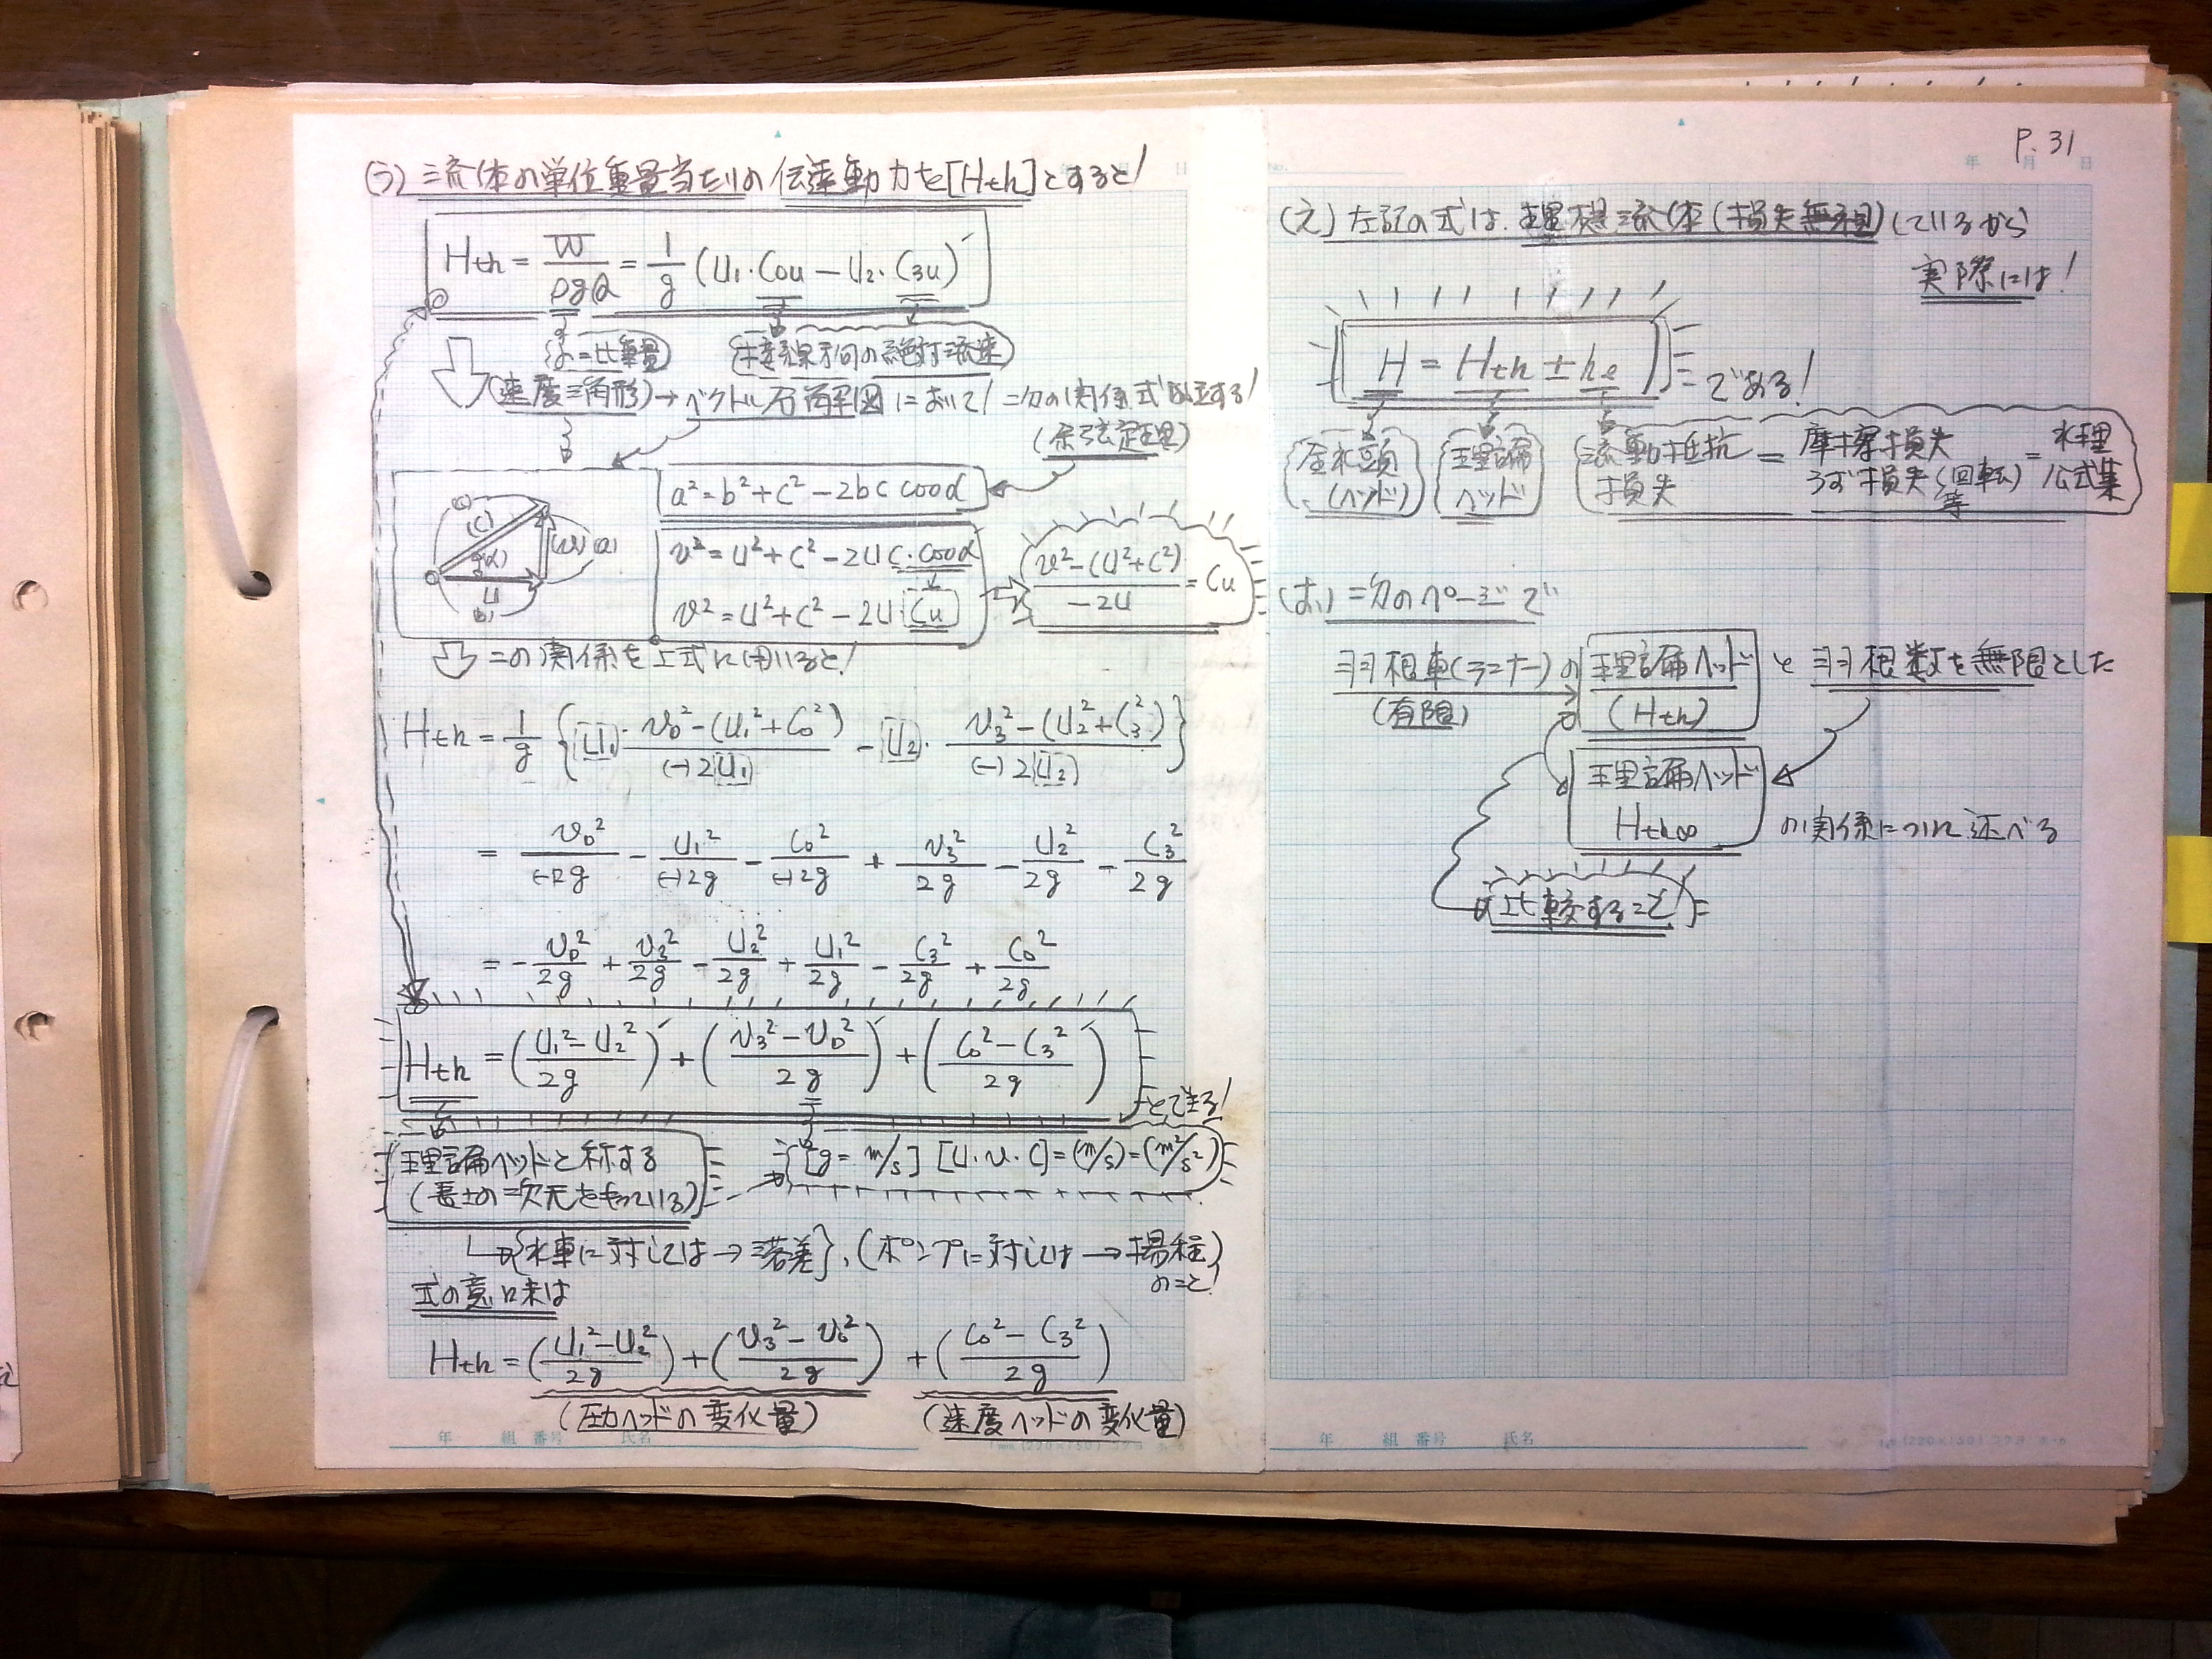 (う) 流体の単位重量当たりの伝達動力を[Hth]とすると!
Hth = W/ρgQ = 1/g (U₁・C₀u − U₂・C₃u)
γ=比重量
接線方向の絶対流速
(速度三角形)→ベクトル図解図において! 二次の関係式が成立する!
(余弦定理)
a² = b² + c² − 2bc cosα
(C)
(α)
(a)
U
(b)
v² = U² + C² − 2UC・cosα
v² = U² + C² − 2U Cu
v² − (U² + C²) / −2U = Cu
この関係を上式に用いると!
Hth = 1/g { U₁・ v₀² − (U₁² + C₀²) / (−)2U₁ − U₂・ v₃² − (U₂² + C₃²) / (−)2U₂ }
= v₀²/(−)2g − U₁²/(−)2g − C₀²/(−)2g + v₃²/2g − U₂²/2g − C₃²/2g
= − v₀²/2g + v₃²/2g − U₂²/2g + U₁²/2g − C₃²/2g + C₀²/2g
Hth = (U₁² − U₂² / 2g) + (v₃² − v₀² / 2g) + (C₀² − C₃² / 2g)
とできる!
理論ヘッドと称する
(長さの次元をもっている)
[g = m/s] [U・v・C] = (m/s) = (m²/s²)
{水車に対しては→落差}、(ポンプに対しては→揚程)
のこと!
式の意味は
Hth = (U₁² − U₂² / 2g) + (v₃² − v₀² / 2g) + (C₀² − C₃² / 2g)
(圧力ヘッドの変化量)
(速度ヘッドの変化量)
年 組 番号 氏名
P. 31
No.
年 月 日
(え) 左記の式は、理想流体(損失無視)しているから
実際には!
H = Hth ± he
である!
全水頭
(ヘッド)
理論
ヘッド
流動抵抗
損失
= 摩擦損失
うず損失(回転)
等
= 水理
公式集
(お) 二次のページで
羽根車(ランナー)の
(有限)
理論ヘッド
(Hth)
と羽根数を無限とした
理論ヘッド
Hth∞
の関係について述べる
比較すること
年 組 番号 氏名